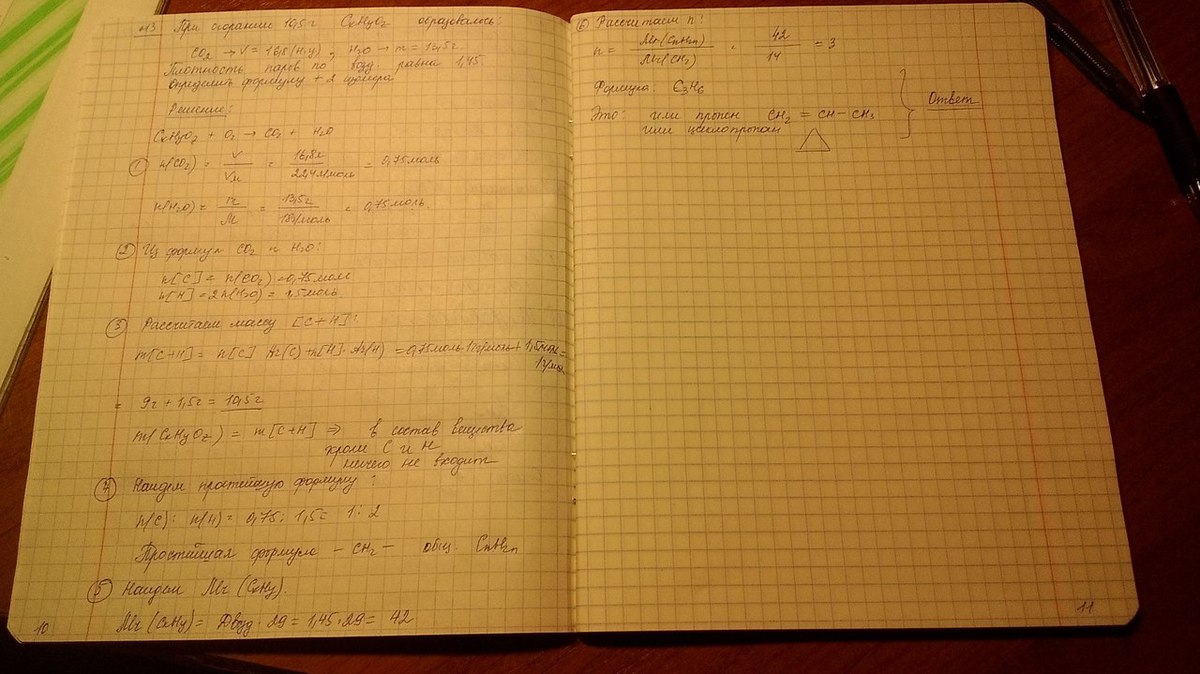 №3 При сгорании 10,5г CxHyOz образовалось:
CO2 → V = 16,8 (н.у), H2O → m = 13,5г.
Плотность паров по возд. равна 1,45
определить формулу + 2 изомера
Решение:
CxHyOz + O2 → CO2 + H2O
① n(CO2) = V/Vм = 16,8л/22,4л/моль = 0,75моль
n(H2O) = m/M = 13,5г/18г/моль = 0,75моль.
② Из формул CO2 и H2O:
n[C] = n(CO2) = 0,75моль
n[H] = 2n(H2O) = 1,5моль
③ Рассчитаем массу [C+H]:
m[C+H] = n[C] · Ar(C) + n[H] · Ar(H) = 0,75моль · 12г/моль + 1,5моль · 1г/моль =
= 9г + 1,5г = 10,5г
m(CxHyOz) = m[C+H] ⇒ в состав вещества
кроме C и H
ничего не входит
④ Найдем простейшую формулу:
n(C) : n(H) = 0,75 : 1,5 = 1 : 2
Простейшая формула – CH2 – общ. CnH2n
⑤ Найдем Mr (CxHy).
Mr (CxHy) = Dвозд · 29 = 1,45 · 29 = 42
10
⑥ Рассчитаем n:
n = Mr(CnH2n)/Mr(CH2) = 42/14 = 3
Формула: C3H6
Это: или пропен CH2 = CH – CH3
или циклопропан
Ответ
11